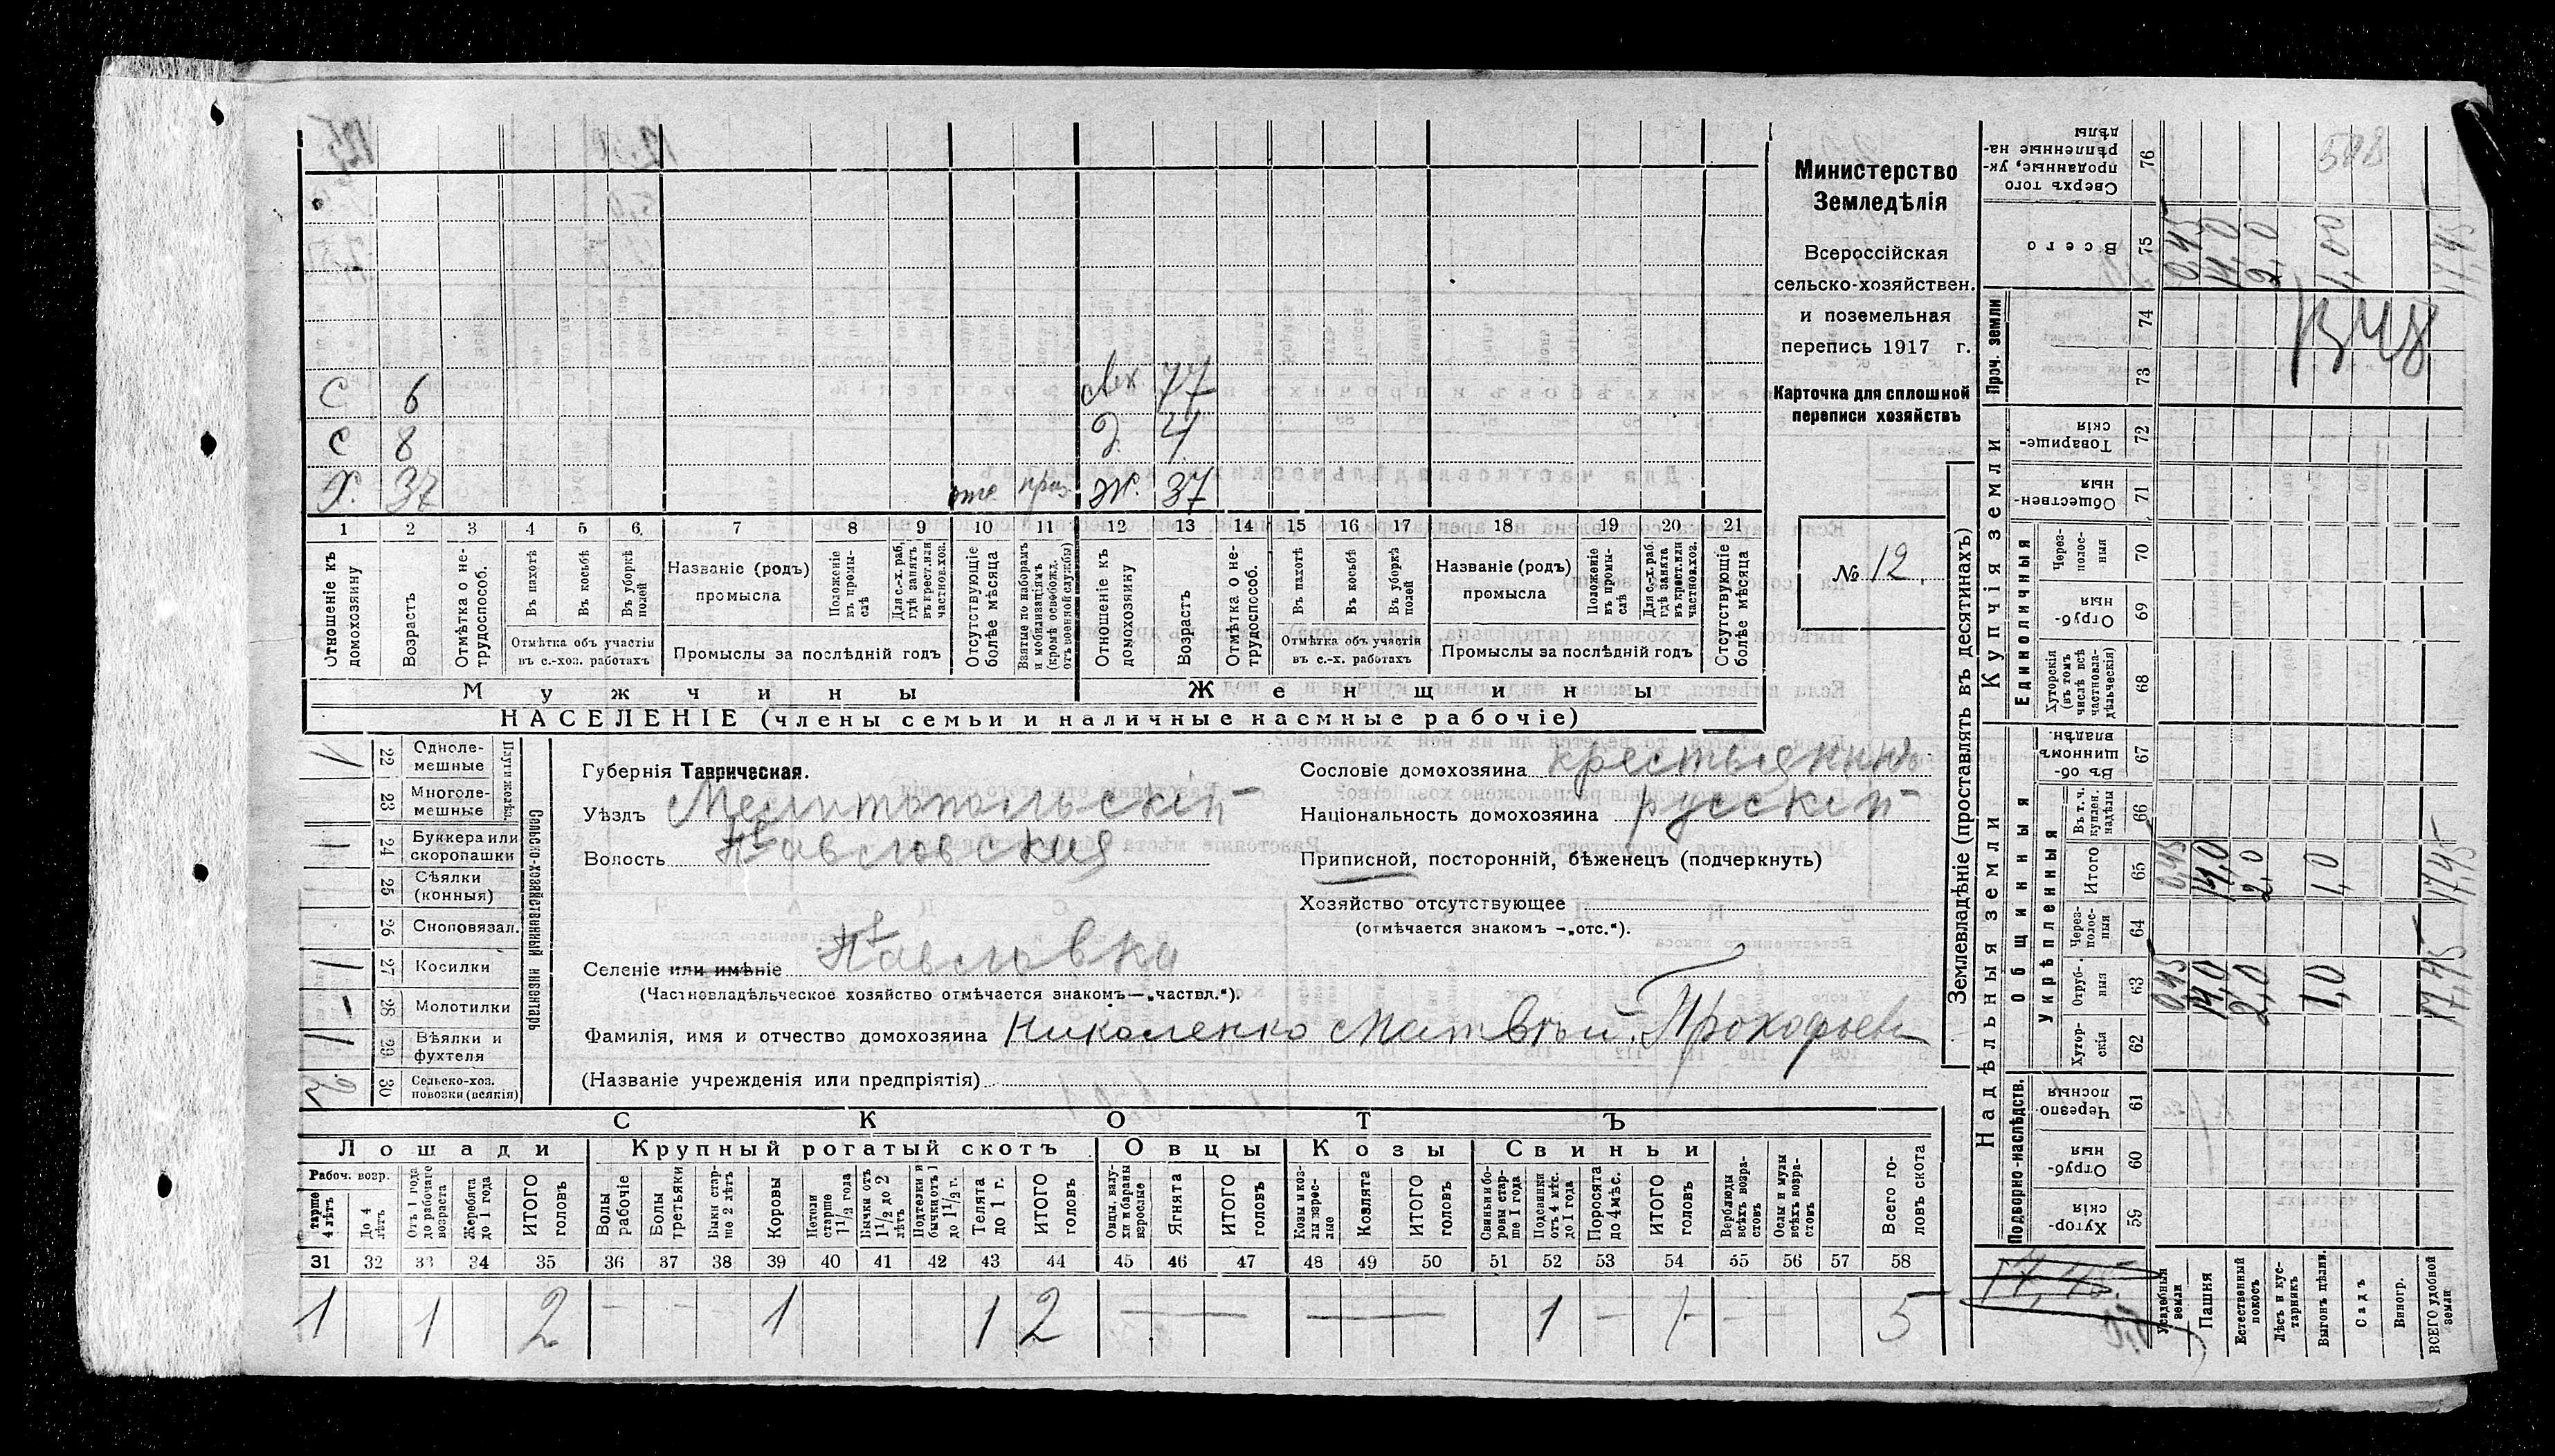 Министерство
Земледѣлія
Всероссійская
сельско-хозяйствен.
и поземельная
перепись 1917 г.
Карточка для сплошной
переписи хозяйствъ
№ 12.
С 6 77
С 8 Д. 4
Х. 37 Ж. 37
1 2 3 4 5 6 7 8 9 10 11 12 13 14 15 16 17 18 19 20 21
Отношеніе къ домохозяину
Возрастъ
Отмѣтка о не-трудоспособ.
Въ пахотѣ
Въ косьбѣ
Въ уборкѣ полей
Отмѣтка объ участіи
въ с.-хоз. работахъ
Названіе (родъ)
промысла
Положеніе въ промы-слѣ
Для с.-х. раб. гдѣ занятъ въ крест. или частнов. хоз.
Промыслы за послѣдній годъ
Отсутствующіе болѣе мѣсяца
Взятые по наборамъ и мобилизаціямъ (кромѣ освобожд. отъ военной службы)
Отношеніе къ домохозяину
Возрастъ
Отмѣтка о не-трудоспособ.
Въ пахотѣ
Въ косьбѣ
Въ уборкѣ полей
Отмѣтка объ участіи
въ с.-х. работахъ
Названіе (родъ)
промысла
Положеніе въ промы-слѣ
Для с.-х. раб. гдѣ занята въ крест. или частнов. хоз.
Промыслы за послѣдній годъ
Отсутствующіе болѣе мѣсяца
Мужчины Женщины
НАСЕЛЕНІЕ (члены семьи и наличные наемные рабочіе)
Сельско-хозяйственный инвентарь
22 Одноле-мешные 1
23 Многоле-мешные
24 Буккера или скоропашки 1
25 Сѣялки (конныя)
26 Сноповязал.
27 Косилки 1
28 Молотилки
29 Вѣялки и фухтеля 1
30 Сельско-хоз. повозки (всякія) 2
Губернія Таврическая.
Уѣздъ Мелитопольскій
Волость Павловская
Селеніе или имѣніе Павловка
(Частновладѣльческое хозяйство отмѣчается знакомъ—„частвл.“).
Фамилія, имя и отчество домохозяина Николенко Матвѣй Прокофьев
(Названіе учрежденія или предпріятія)
Сословіе домохозяина крестьянинъ
Національность домохозяина русскій
Приписной, посторонній, бѣженец (подчеркнуть)
Хозяйство отсутствующее
(отмѣчается знакомъ —„отс.“).
СКОТЪ
Лошади Крупный рогатый скотъ Овцы Козы Свиньи
Рабоч. возр.
старше 4 лѣтъ
До 4 лѣтъ
Отъ 1 года до рабочаго возраста
Жеребята до 1 года
ИТОГО головъ
Волы рабочіе
Волы третьяки
Быки стар-ше 2 лѣтъ
Коровы
Нетели старше 1 1/2 года
Бычки отъ 1 1/2 до 2 лѣтъ
Подтелки и бычки отъ 1 до 1 1/2 г.
Телята до 1 г.
ИТОГО головъ
Овцы, валу-хи и бараны взрослые
Ягнята
ИТОГО головъ
Козы и коз-лы взрос-лые
Козлята
ИТОГО головъ
Свиньи и бо-ровы стар-ше 1 года
Подсвинки отъ 4 мѣс. до 1 года
Поросята до 4 мѣс.
ИТОГО головъ
Верблюды всѣхъ возра-стовъ
Ослы и мулы всѣхъ возра-стовъ
Всего го-ловъ скота
31 32 33 34 35 36 37 38 39 40 41 42 43 44 45 46 47 48 49 50 51 52 53 54 55 56 57 58
1 1 2 — — 1 1 2 — — 1 — 1 — 5
Землевладѣніе (проставлять въ десятинахъ)
Надѣльныя земли Купчія земли Проч. земли
Подворно-наслѣдств. Общинныя Единоличныя
Укрѣпленныя
Хутор-скія 59
Отруб-ныя 60
Черезпо-лосныя 61
Хутор-скія 62
Отруб-ныя 63
Через-полос-ныя 64
Итого 65
Въ т. ч. куплен. надѣлы 66
Въ об-щинномъ владѣн. 67
Хуторскія (въ томъ числѣ всѣ частновла-дѣльческія) 68
Отруб-ныя 69
Через-полос-ныя 70
Обществен-ныя 71
Товарище-скія 72
73
74
Всего 75
Сверхъ того проданные, ук-рѣпленные на-дѣлы 76
Усадебныя земли 0,45 0,45 0,45
Пашня 14,0 14,0 14,0
Естественный покосъ 2,0 2,0 2,0
Лѣсъ и кус-тарникъ
Выгонъ цѣлин. 1,0 1,0 1,00
Садъ
Виногр.
ВСЕГО удобной земли 17,45 17,45 17,45
17,45.